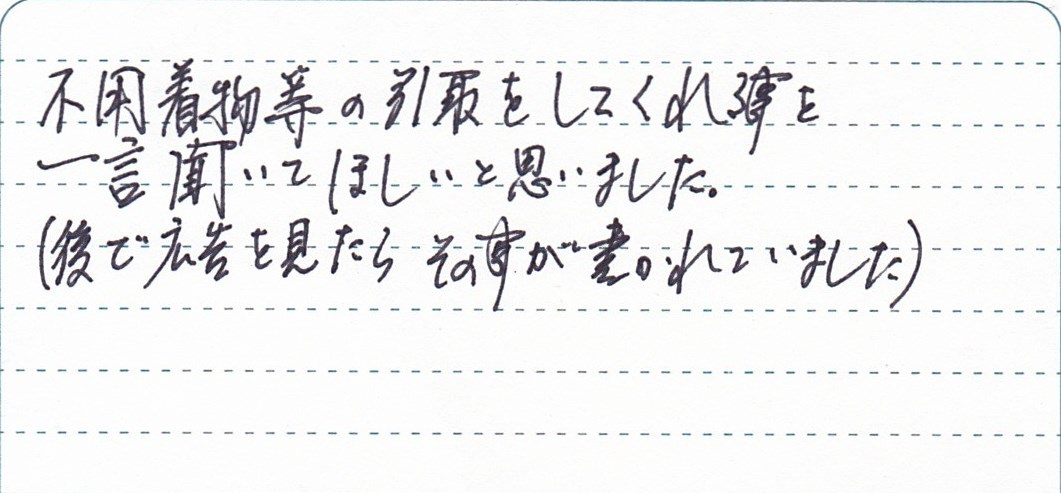 不用着物等の引取をしてくれ事を
一言聞いてほしいと思いました。
(後で広告を見たら その事が書かれていました)